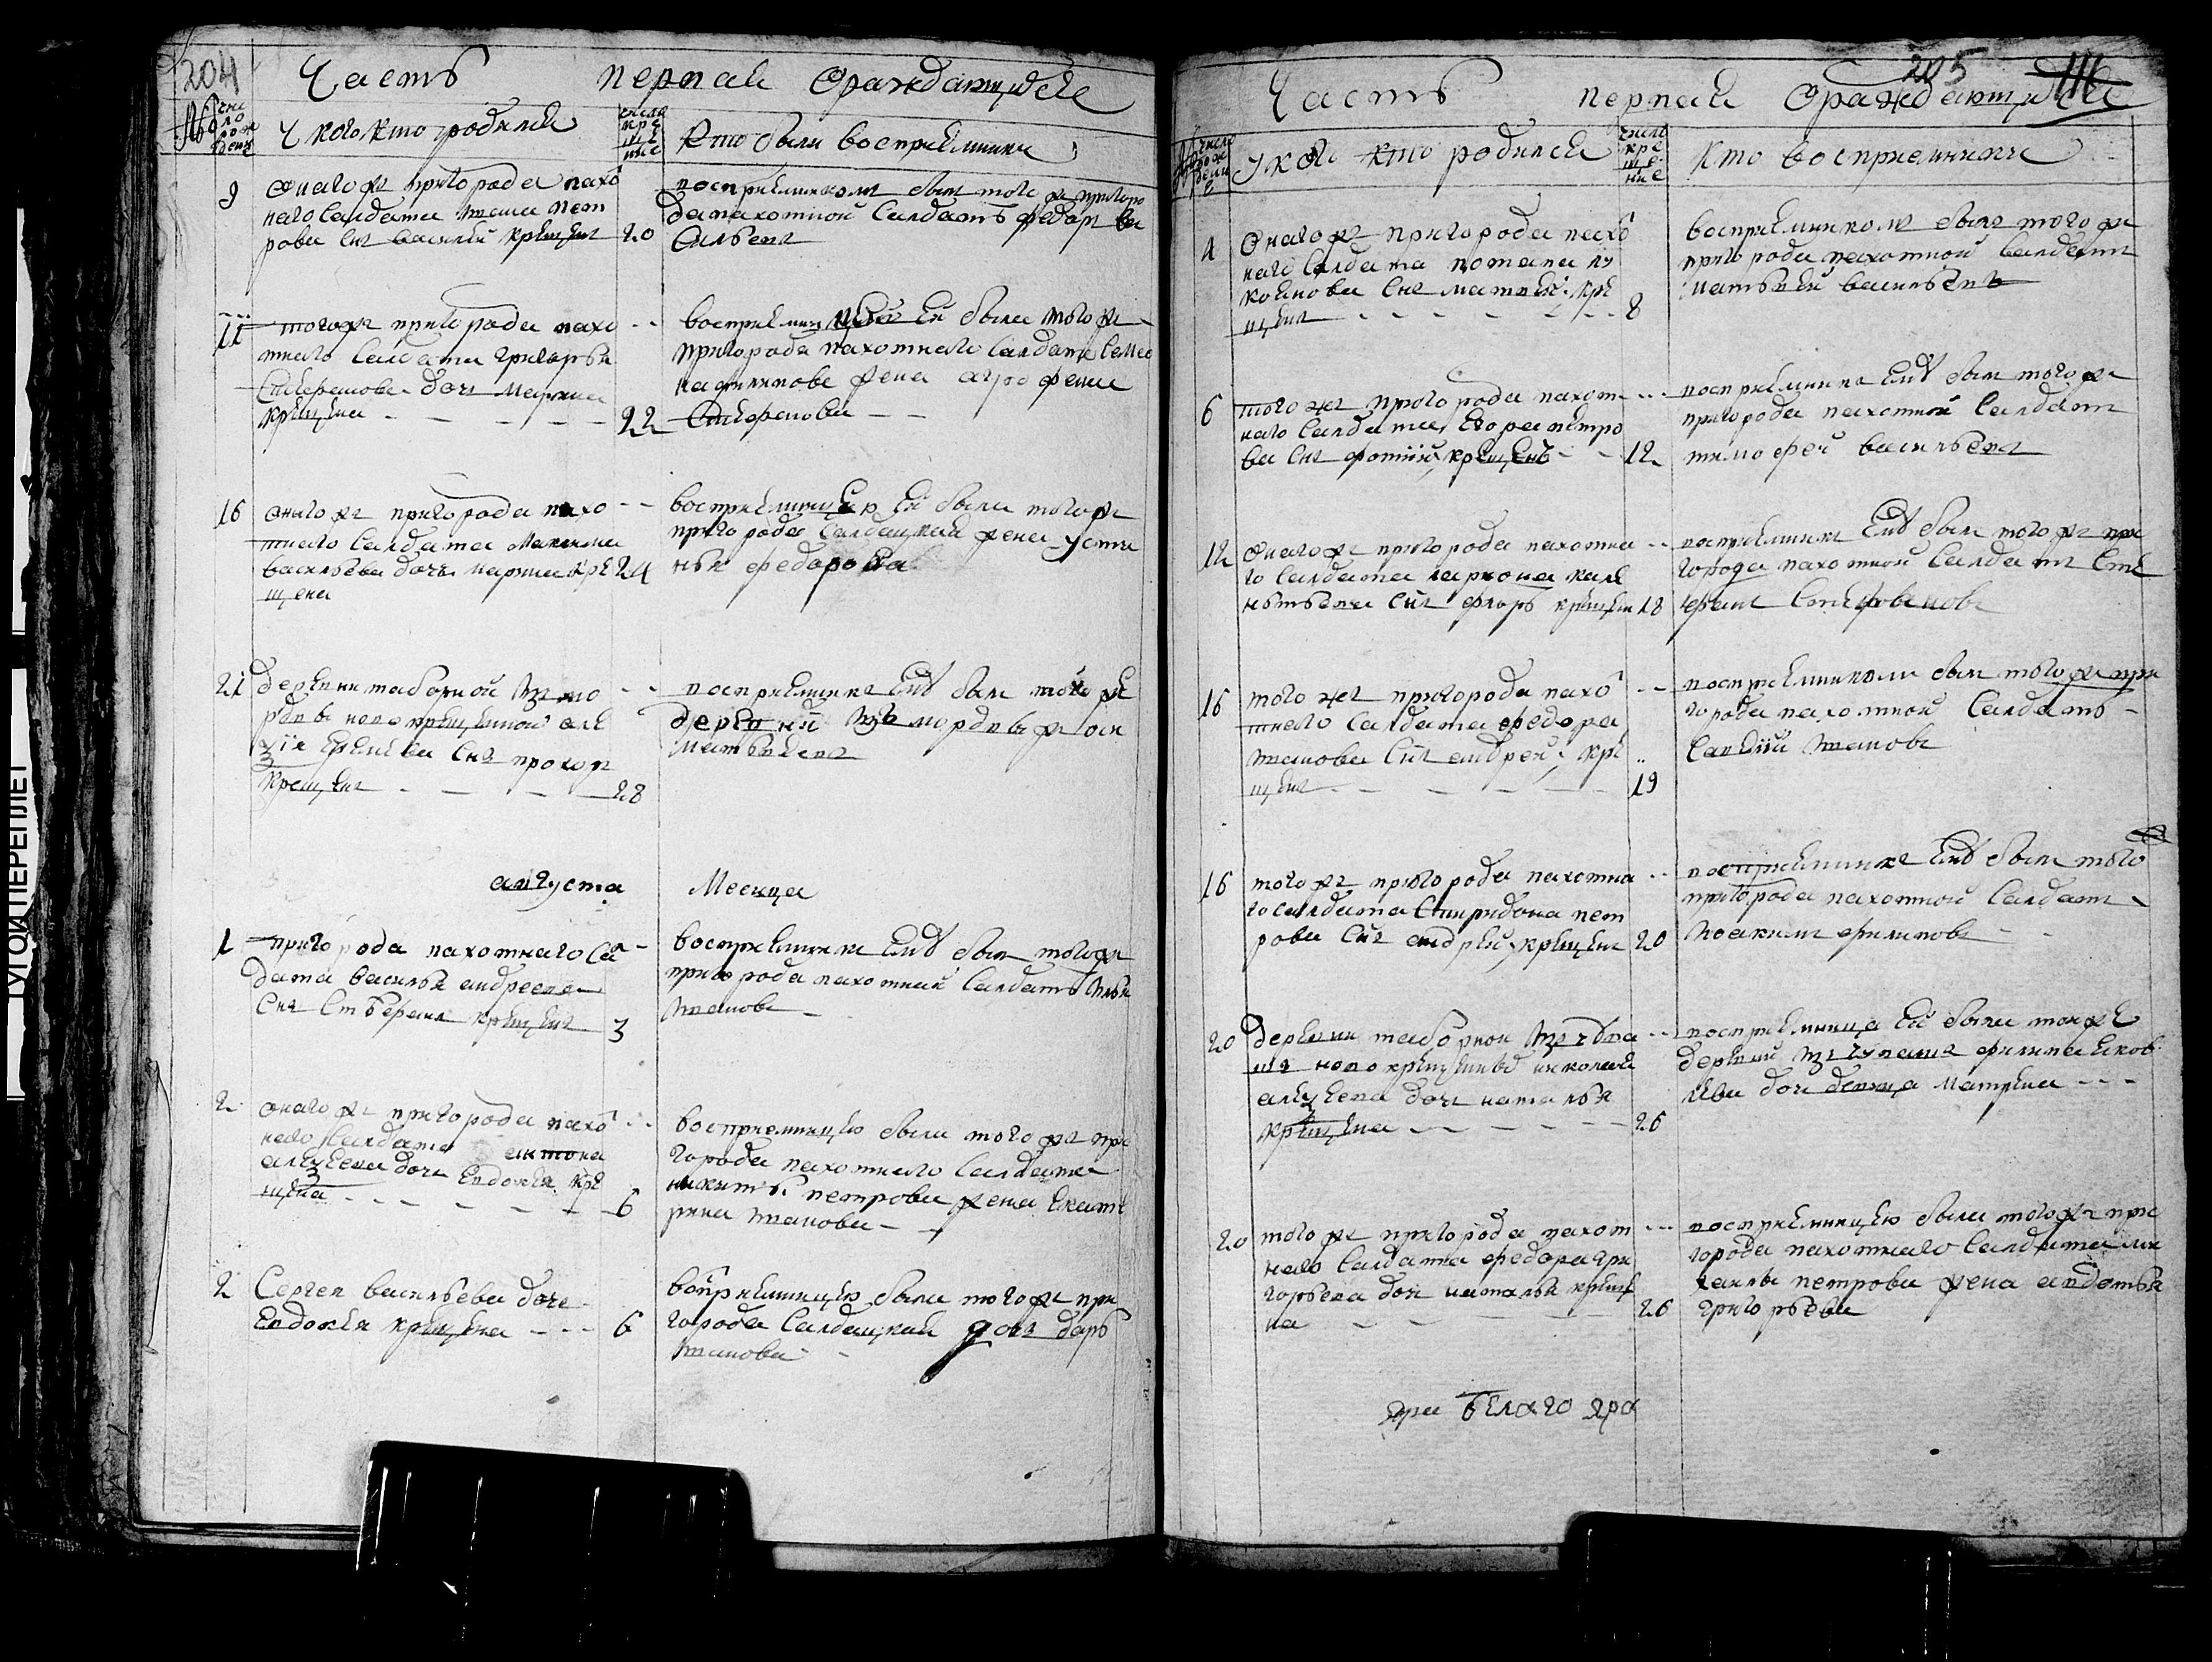 204
Часть первая Ораждающихся
число рождения
У кого кто родился
число крещение
Кто были восприемники
9 Онагож пригорода пахо
наго Салдата Ивана пет
рова снъ василий крещенъ 20
восприемникомъ былъ тогож пригоро
да пахотной Салдатъ федоръ ва
сильевъ
11 тогожъ пригорода пахо
тнаго Салдата григорья
дочь марина
крещена 22
восприемницею ей была тогож
пригорода пахотнаго Салдата Семе
на филипова жена агрофена
16 онагож пригорода пахо
тнаго Салдата Максима
васильева дочь марина кре 24
щена
восприемницею ей была тогож
пригорода Салдацкая жена усти
нья федорова
21 деревни таборной Изъ мо
рдвы новокрещеной але
ѯiя снъ прохоръ
крещенъ 28
восприемникъ ему былъ той же
деревни Изъ мордвы ж
матвеевъ
августа Месяца
1 пригорода пахотнаго Сал
дата василья андреева
снъ Стеѳанъ крещенъ 3
восприемникъ ему былъ тогож
пригорода пахотный Салдатъ Илья
Ивановъ
2 онагож пригорода пахо
наго Салдата антона
алеѯеева дочь Евдокия кре
щена 6
восприемницею была тогож при
города пахотнаго Салдата
никиты петрова жена Екате
рина Иванова
2 Сергея васильева дочь
Евдокия крещена 6
восприемницею была тогож при
города Салдацкая дочь дарья
Иванова
205
Часть первая Ораждающихся
число рождение
У кого кто родился
число крещение
Кто восприемники
4 Онагож пригорода пахо
наго Салдата потапа лу
коянова снъ матвей кре
щенъ 8
восприемникомъ былъ тогож
пригорода пахотной Салдатъ
матвей васильевъ
6 того жъ пригорода пахот
наго Салдата Егора петро
ва снъ фотий крещенъ 12
восприемникъ ему былъ тогож
пригорода пахотной Салдатъ
тимофей васильевъ
12 Онагож пригорода пахотна
го Салдата лариона
снъ флоръ крещен 18
восприемникъ ему былъ тогож при
города пахотной Салдатъ Сте
16 того жъ пригорода пахо
тнаго Салдата федора
Иванова снъ андрей кре
щенъ 19
восприемникомъ былъ тогож при
города пахотной Салдатъ
Савелий Ивановъ
16 тогож пригорода пахотна
го Салдата Спиридона пет
рова снъ андрей крещенъ 20
восприемникъ ему былъ того
пригорода пахотной Салдатъ
Иоакимъ филиповъ
20 деревни таборной Изъ чува
шъ новокрещенъ николая
алеѯеева дочь наталья
крещена 26
восприемница ей была тояже
деревни Изъ чувашъ филипа
дочь девица матрена
20 тогож пригорода пахот
наго Салдата федора гри
горьева дочь наталья креще
на 26
восприемницею была тогож при
города пахотнаго Салдата ми
хаилы петрова жена авдотья
григорьева
при белаго яра
ТУГОЙ ПЕРЕПЛЕТ